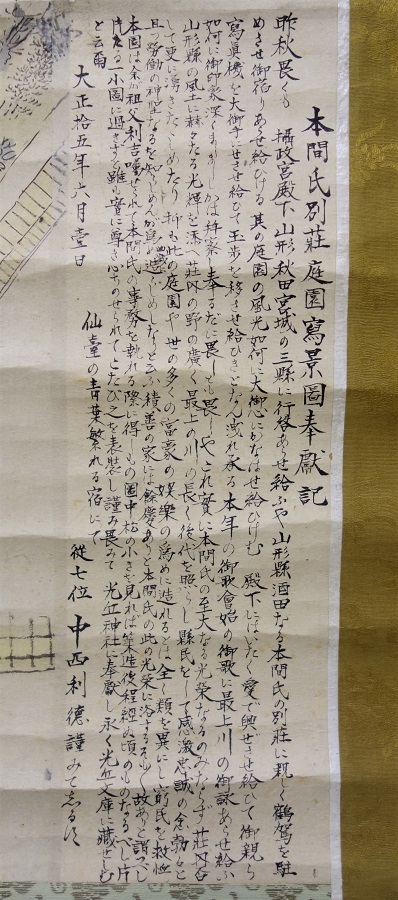 本間氏別莊庭園寫景圖奉獻記
昨秋畏くも 攝政宮殿下山形秋田宮城の三縣に行啓あらせ給ふや山形縣酒田なる本間氏の別莊に親く鶴駕を駐
めさせ御宿りあらせ給ひける 其の庭園の風光如何に大御心にかなはせ給ひけむ 殿下にはいたく愛で興せさせ給ひて御親ら
寫眞機を大御手にせさせ給ひて玉歩を移させ給ひきとなん洩れ承る 本年の御歌會始の御歌に最上川の御詠あらせ給ふ
如何に御印象深くましませしかは拜察し奉るだに畏しとも畏しや これ實に本間氏の至大なる光榮なるのみならず 莊内
山形縣の風土に赫々たる光輝を添へ莊内の野の廣く最上の川の長く後代を照らし縣民をして感激忠誠の念
して更に深きたらしめたり 抑も此の庭園や 世の多くの富豪の娯樂の爲めに造れるとは全く類を異にし窮民を救恤
且つ勞働の神聖なるを知らしめんが爲め造らしめしなりと云ふ積善の家には餘慶ありと本間氏の此の光榮に浴するも故ありと謂つべし
本圖は余が祖父利吉 本間氏の事務を執れる際に得しもの圖中松の小さきを見れば築造後程經ぬ頃のものなるべし片
片たる一小圖に過ぎずと雖も實に尊き心ちのせられてこたび之を表裝し謹み畏みて 光丘神社に奉獻し永く光丘文庫に藏せしむ
と云爾
大正拾五年六月壹日
仙臺の青葉繁れる宿にて
從七位 中西利德謹みてしるす